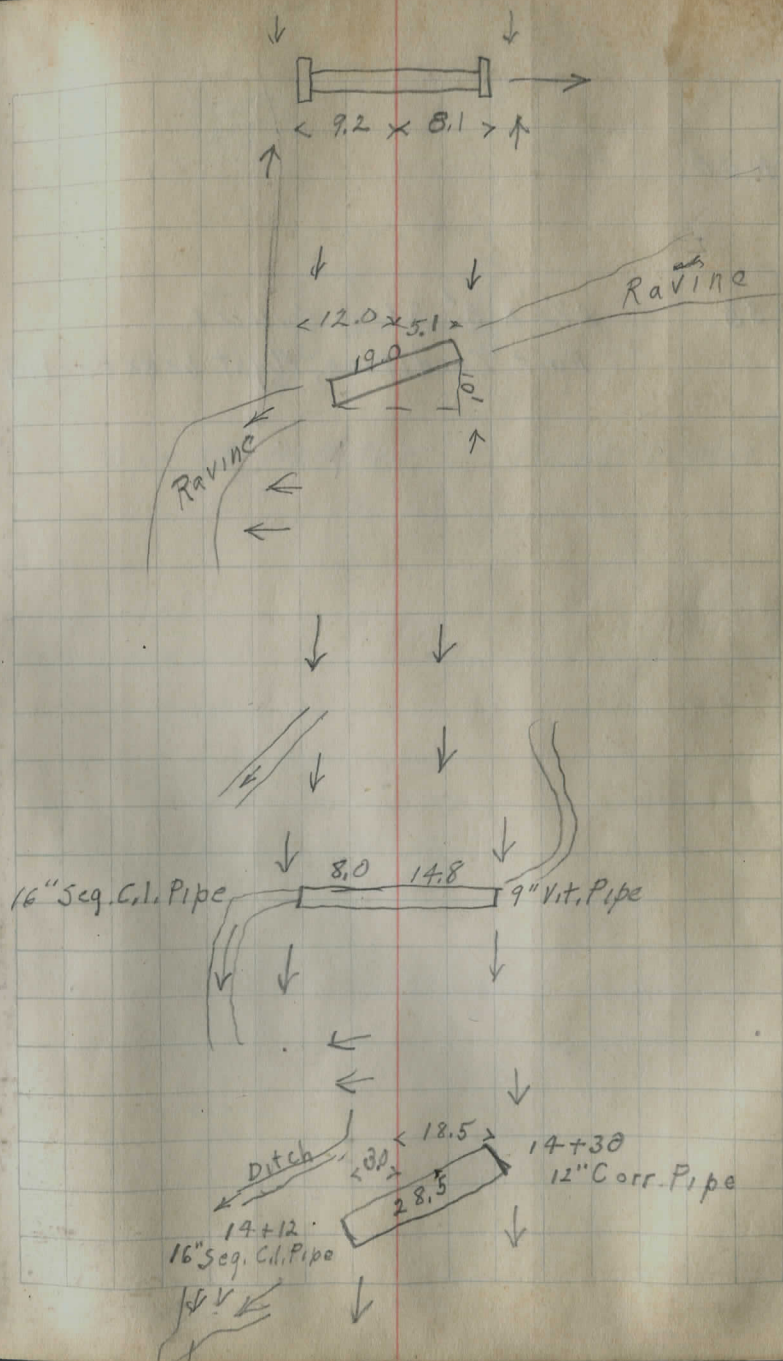 9.2 8.1
Ravine
12.0 5.1
19.0
Ravine
8.0 14.8
16" Seg. C.I. Pipe
9" Vit. Pipe
18.5
14+38
Ditch
12" Corr. Pipe
28.5
14+12
16" Seg. C.I. Pipe